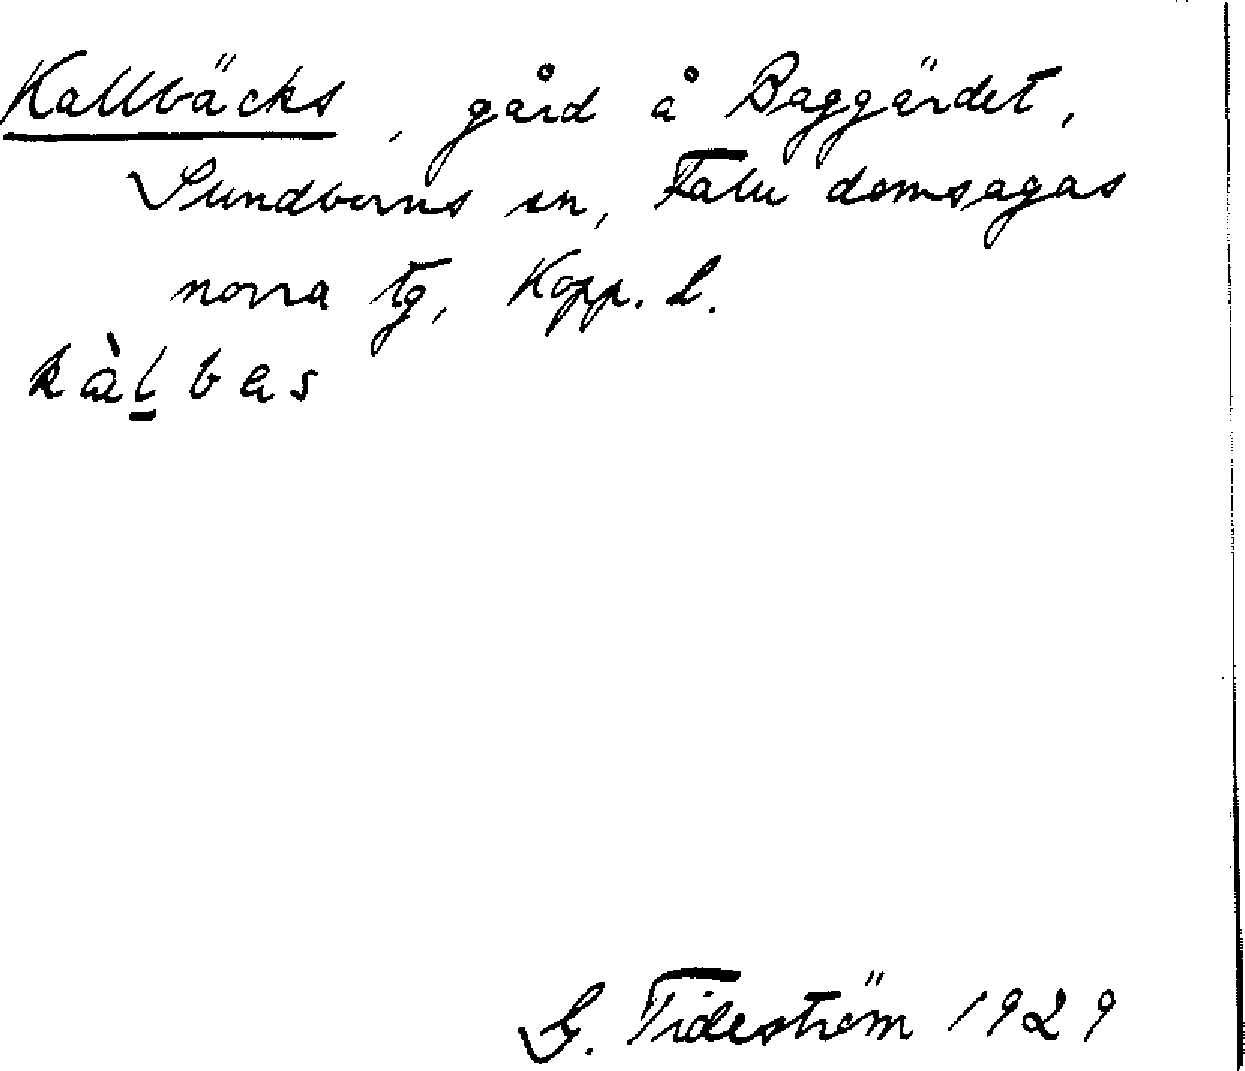 Kallbäcks, gård å Baggärdet,
Sundborns sn, Falu domsagas
norra tg, Kopp. l.
kàl̲bas
G. Tideström 1929